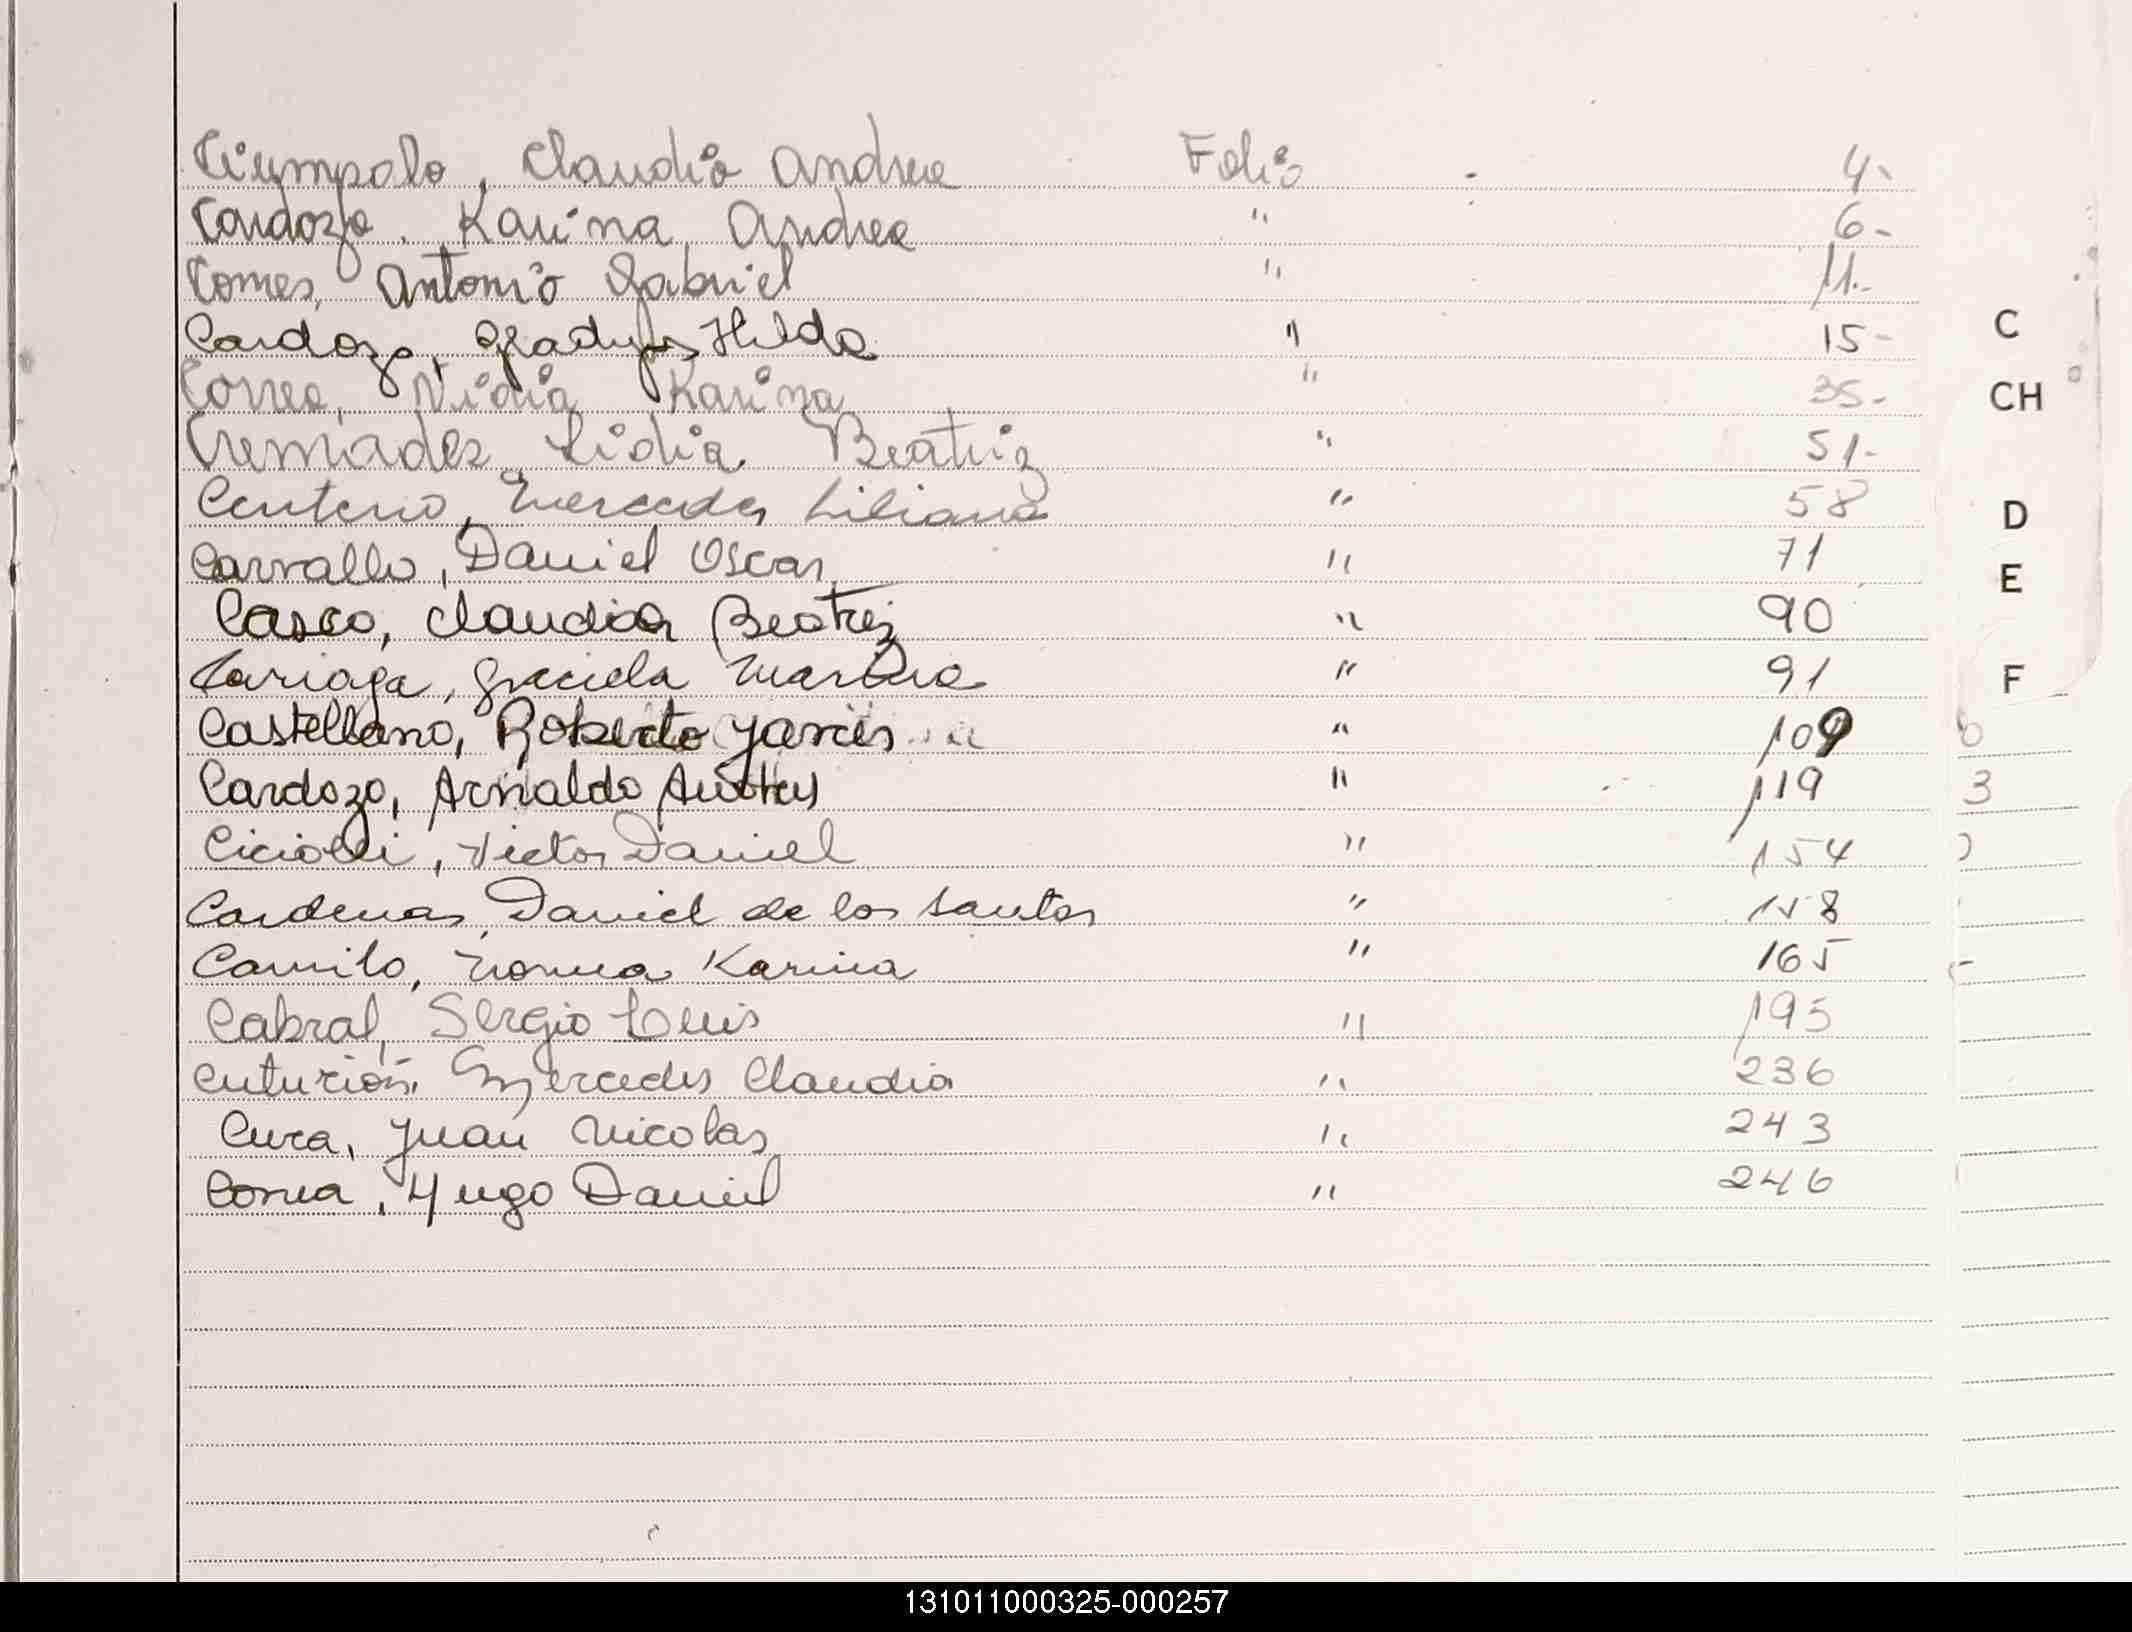 Ciympolo, Claudia Andrea Folio 4-
Cardozo. Karina Andrea " 6-
Comes, Antonio Gabriel " 11-
Cardozo, Gladys Hilda " 15-
Correa, Nidia Karina " 35-
Cremades Lidia Beatriz " 51-
Centeno, Mercedes Liliana " 58
Carvallo, Daniel Oscar " 71
Casco, Claudia Beatriz " 90
Cariaga, Graciela Martha " 91
Castellano, Roberto Javier " 109
Cardozo, Arnaldo " 119
Ciciolli, Victor Daniel " 154
Cardenas, Daniel de los Santos " 158
Camilo, Norma Karina " 165
Cabral, Sergio Luis " 195
Centurión, Mercedes Claudia " 236
Cura, Juan Nicolas " 243
Correa, Hugo Daniel " 246
C
CH
D
E
F
3
131011000325-000257